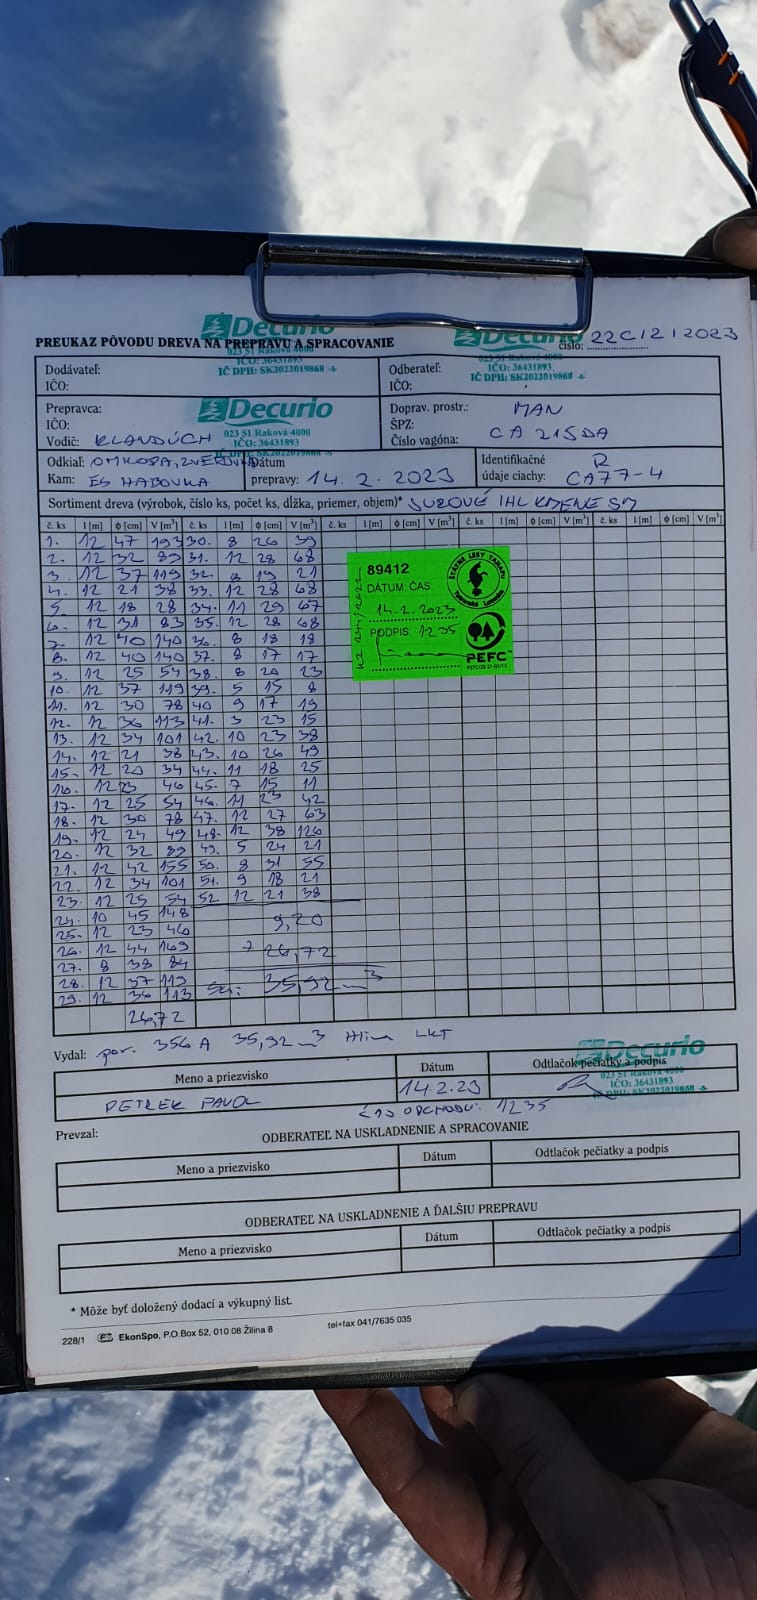 Decurio
023 51 Raková 4000
IČO: 36431893
IČ DPH: SK2022019868 -6-
Decurio
IČO: 36431893
IČ DPH: SK2022019868 -6-
PREUKAZ PÔVODU DREVA NA PREPRAVU A SPRACOVANIE
číslo: 22C/2/2023
Dodávateľ:
IČO:
Odberateľ:
IČO:
Prepravca:
IČO:
Vodič: KLANDÚCH
Decurio
023 51 Raková 4000
IČO: 36431893
IČ DPH: SK2022019868 -6-
Doprav. prostr.: MAN
ŠPZ:
Číslo vagóna: CA 215DA
Odkiaľ:
Kam: ES HABOVKA
Dátum
prepravy: 14. 2. 2023
Identifikačné
údaje ciachy: R CA77-4
Sortiment dreva (výrobok, číslo ks, počet ks, dĺžka, priemer, objem)* SUROVÉ IHL KMENE SM
č. ks l [m] φ [cm] V [m³] č. ks l [m] φ [cm] V [m³] č. ks l [m] φ [cm] V [m³] č. ks l [m] φ [cm] V [m³] č. ks l [m] φ [cm] V [m³]
1. 12 47 193 30. 8 26 39
2. 12 32 89 31. 12 28 68
3. 12 37 119 32. 8 19 21
4. 12 21 38 33. 12 28 68
5. 12 18 28 34. 11 29 67
6. 12 31 83 35. 12 28 68
7. 12 40 140 36. 8 18 18
8. 12 40 140 37. 8 17 17
9. 12 25 54 38. 8 20 23
10. 12 37 119 39. 5 15 8
11. 12 30 78 40 9 17 19
12. 12 36 113 41. 3 23 15
13. 12 34 101 42. 10 23 38
14. 12 21 38 43. 10 26 49
15. 12 20 34 44. 11 18 25
16. 12 23 46 45. 7 15 11
17. 12 25 54 46. 11 23 42
18. 12 30 78 47. 12 27 63
19. 12 24 49 48. 12 38 126
20. 12 32 89 49. 5 24 21
21. 12 42 155 50. 8 31 55
22. 12 34 101 51. 9 18 21
23. 12 25 54 52. 12 21 38
24. 10 45 148
25. 12 23 46 9,20
26. 12 44 169 + 26,72
27. 8 38 84
28. 12 37 119 35,92 m³
29. 12 36 113
26,72
89412
DÁTUM: ČAS:
14. 2. 2023
PODPIS: 1235
ŠTÁTNE LESY TANAPU
Tatranská Lomnica
PEFC
Vydal: por. 356 A 35,92 m³ LKT
Meno a priezvisko Dátum Odtlačok pečiatky a podpis
PETREK PAVOL 14.2.23
Decurio
023 51 Raková 4000
IČO: 36431893
IČ DPH: SK2022019868 -6-
ČAS ODCHODU: 1235
Prevzal: ODBERATEĽ NA USKLADNENIE A SPRACOVANIE
Meno a priezvisko Dátum Odtlačok pečiatky a podpis
ODBERATEĽ NA USKLADNENIE A ĎALŠIU PREPRAVU
Meno a priezvisko Dátum Odtlačok pečiatky a podpis
* Môže byť doložený dodací a výkupný list.
228/1 EkonSpo, P.O.Box 52, 010 08 Žilina 8 tel+fax 041/7635 035